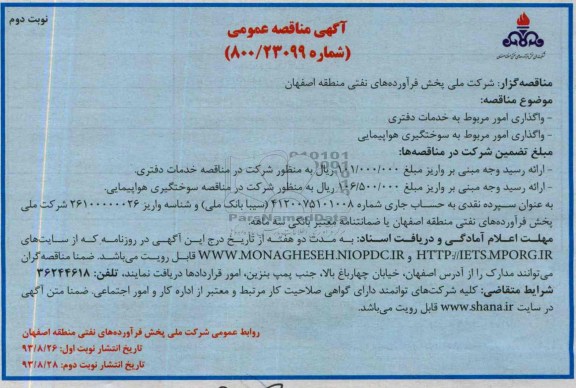 نوبت دوم
آگهی مناقصه عمومی
(شماره ۸۰۰/۲۳۰۹۹)
مناقصه‌گزار: شرکت ملی پخش فرآورده‌های نفتی منطقه اصفهان
موضوع مناقصه:
- واگذاری امور مربوط به خدمات دفتری
- واگذاری امور مربوط به سوختگیری هواپیمایی
مبلغ تضمین شرکت در مناقصه‌ها:
- ارائه رسید وجه مبنی بر واریز مبلغ ریال به منظور شرکت در مناقصه خدمات دفتری.
- ارائه رسید وجه مبنی بر واریز مبلغ ریال به منظور شرکت در مناقصه سوختگیری هواپیمایی.
به عنوان سپرده نقدی به حساب جاری شماره ۴۱۲۰۰۷۵۱۰۱۰۰۸ (سیبا بانک ملی) و شناسه واریز ۲۶۱۰۰۰۰۰۰۲۶ شرکت ملی
پخش فرآورده‌های نفتی منطقه اصفهان یا ضمانتنامه معتبر بانکی سه ماهه.
مهلت اعلام آمادگی و دریافت اسناد: به مدت دو هفته از تاریخ درج این آگهی در روزنامه که از سایت‌های
HTTP://IETS.MPORG.IR و WWW.MONAGHESEH.NIOPDC.IR قابل رویت می‌باشد. ضمنا مناقصه‌گران
می‌توانند مدارک را از آدرس اصفهان، خیابان چهارباغ بالا، جنب پمپ بنزین، امور قراردادها دریافت نمایند، تلفن: ۳۶۲۴۴۶۱۸
شرایط متقاضی: کلیه شرکت‌های توانمند دارای گواهی صلاحیت کار مرتبط و معتبر از اداره کار و امور اجتماعی. ضمنا متن آگهی
در سایت www.shana.ir قابل رویت می‌باشد.
روابط عمومی شرکت ملی پخش فرآورده‌های نفتی منطقه اصفهان
تاریخ انتشار نوبت اول: ۹۳/۸/۲۶
تاریخ انتشار نوبت دوم: ۹۳/۸/۲۸